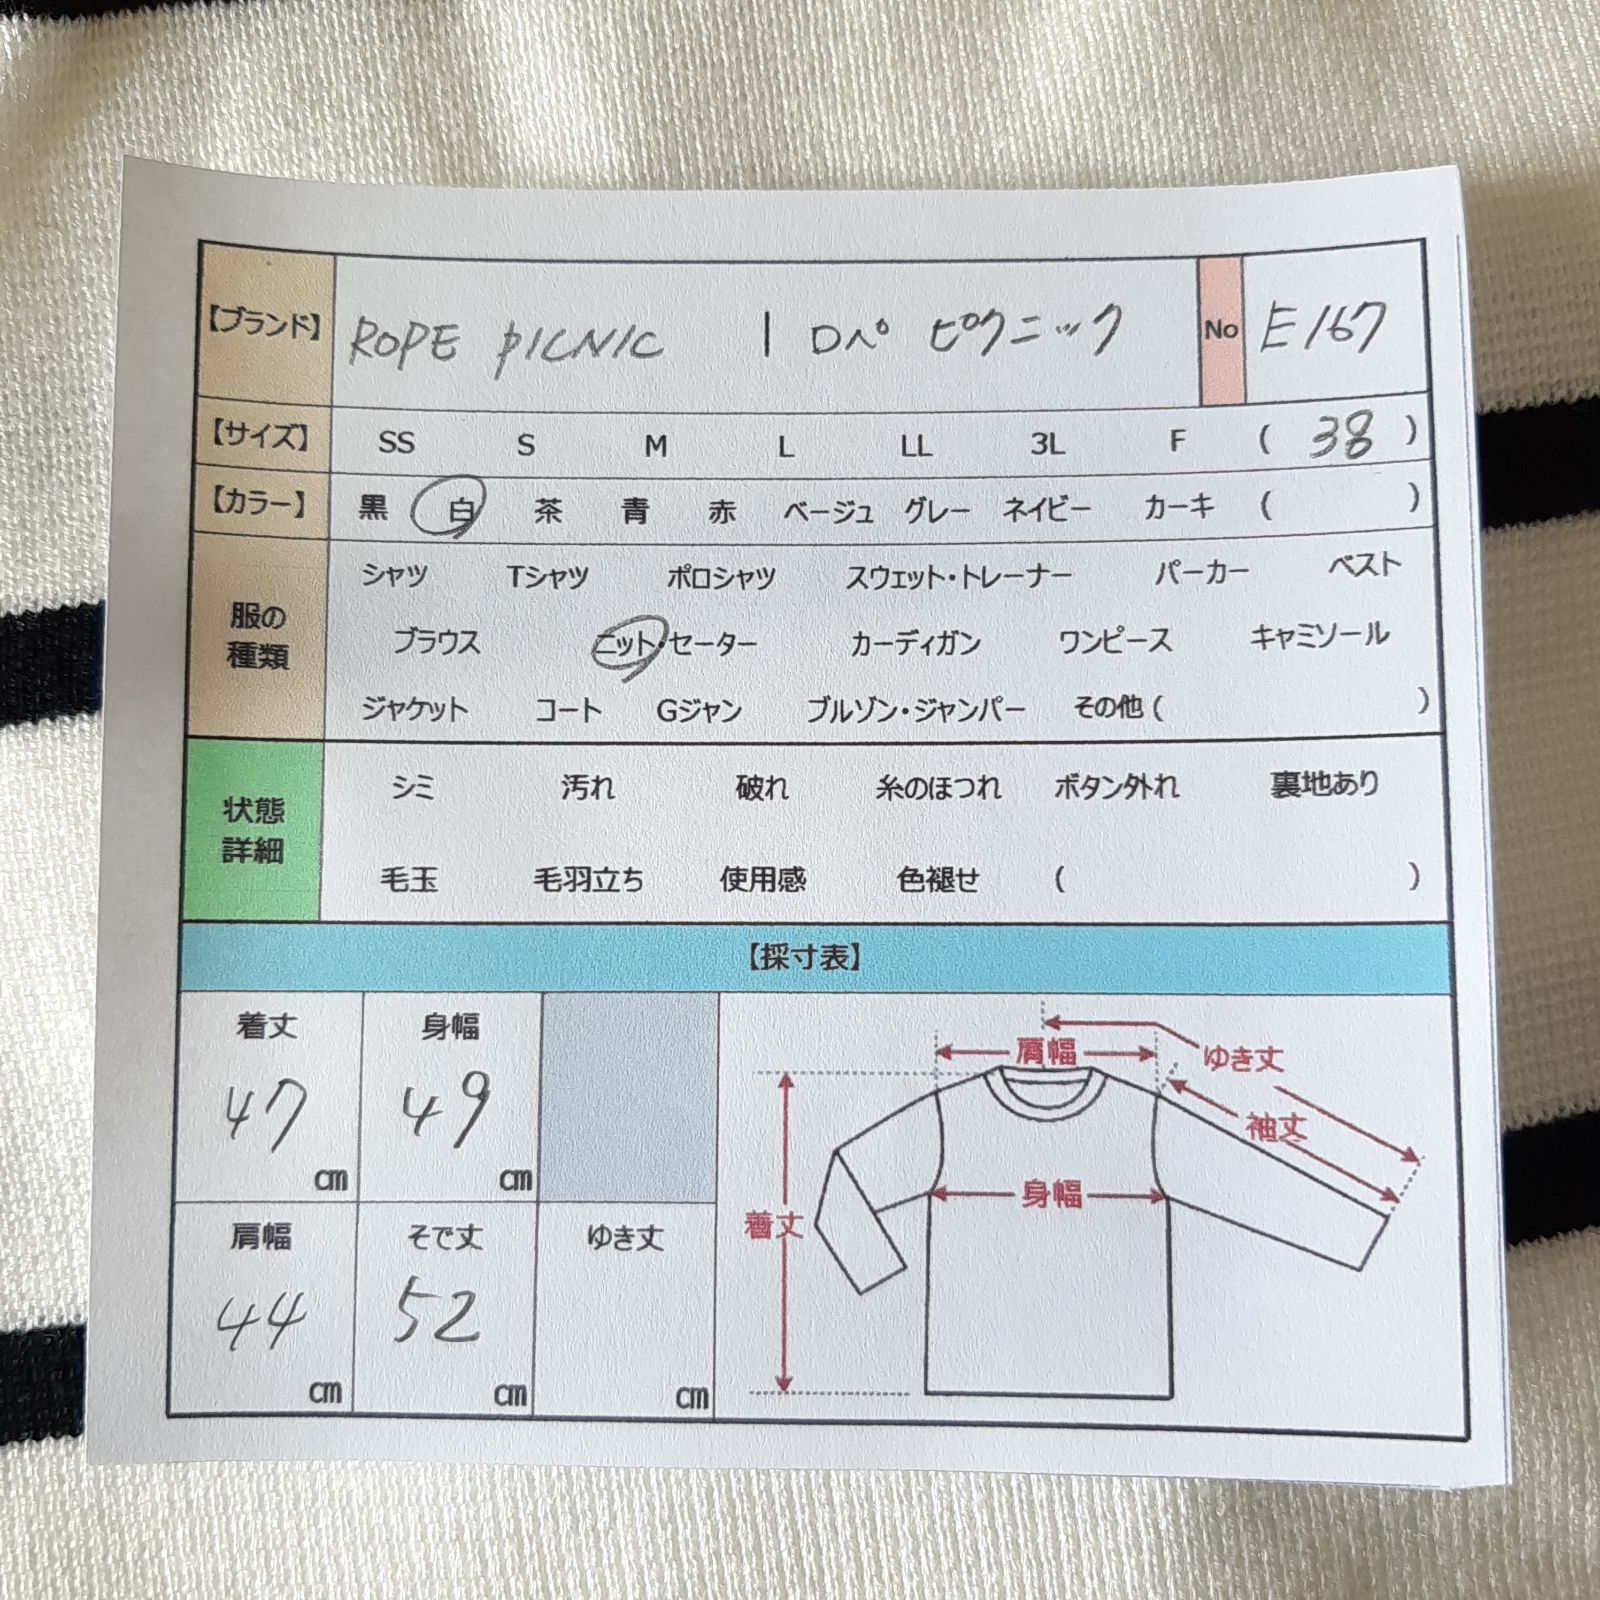 【ブランド】 ROPE PICNIC | ロペ ピクニック No E167
【サイズ】 SS S M L LL 3L F ( 38 )
【カラー】 黒 白 茶 青 赤 ベージュ グレー ネイビー カーキ ( )
服の種類
シャツ Tシャツ ポロシャツ スウェット・トレーナー パーカー ベスト
ブラウス ニット・セーター カーディガン ワンピース キャミソール
ジャケット コート Gジャン ブルゾン・ジャンパー その他 ( )
状態詳細
シミ 汚れ 破れ 糸のほつれ ボタン外れ 裏地あり
毛玉 毛羽立ち 使用感 色褪せ ( )
【採寸表】
着丈 身幅
47 cm 49 cm
肩幅 そで丈 ゆき丈
44 cm 52 cm cm
肩幅
ゆき丈
袖丈
身幅
着丈